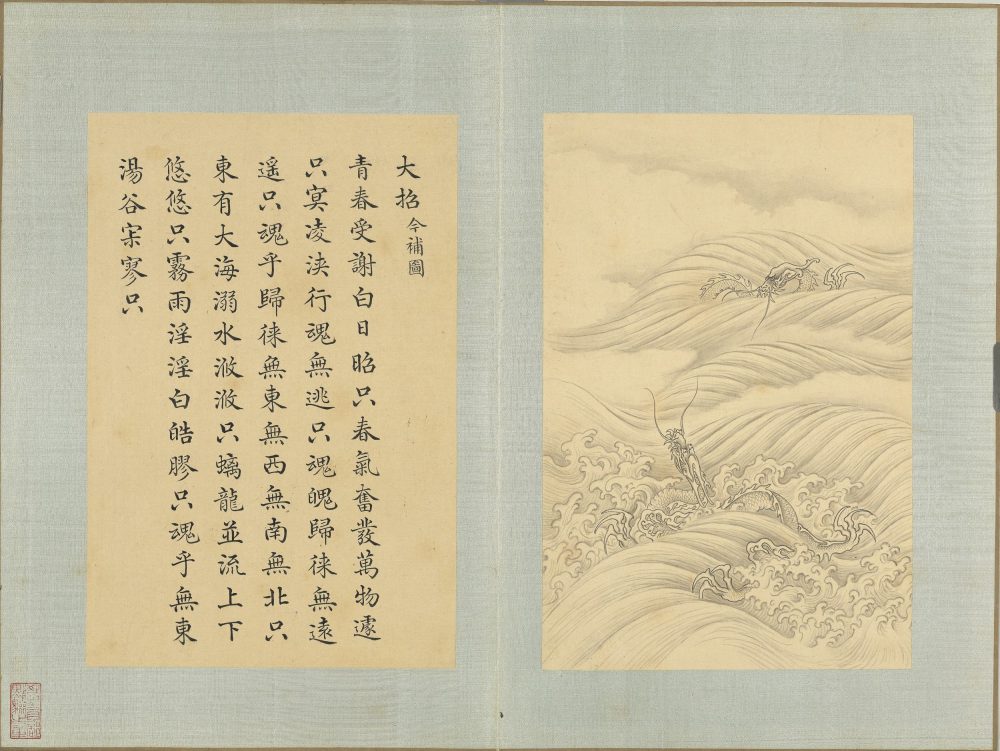 大招今補圖
青春受謝白日昭只春氣奮發萬物遽
只冥凌浹行魂無逃只魂魄歸徠無遠
遥只魂乎歸徠無東無西無南無北只
東有大海溺水浟浟只螭龍並流上下
悠悠只霧雨淫淫白皓膠只魂乎無東
湯谷宋寥只